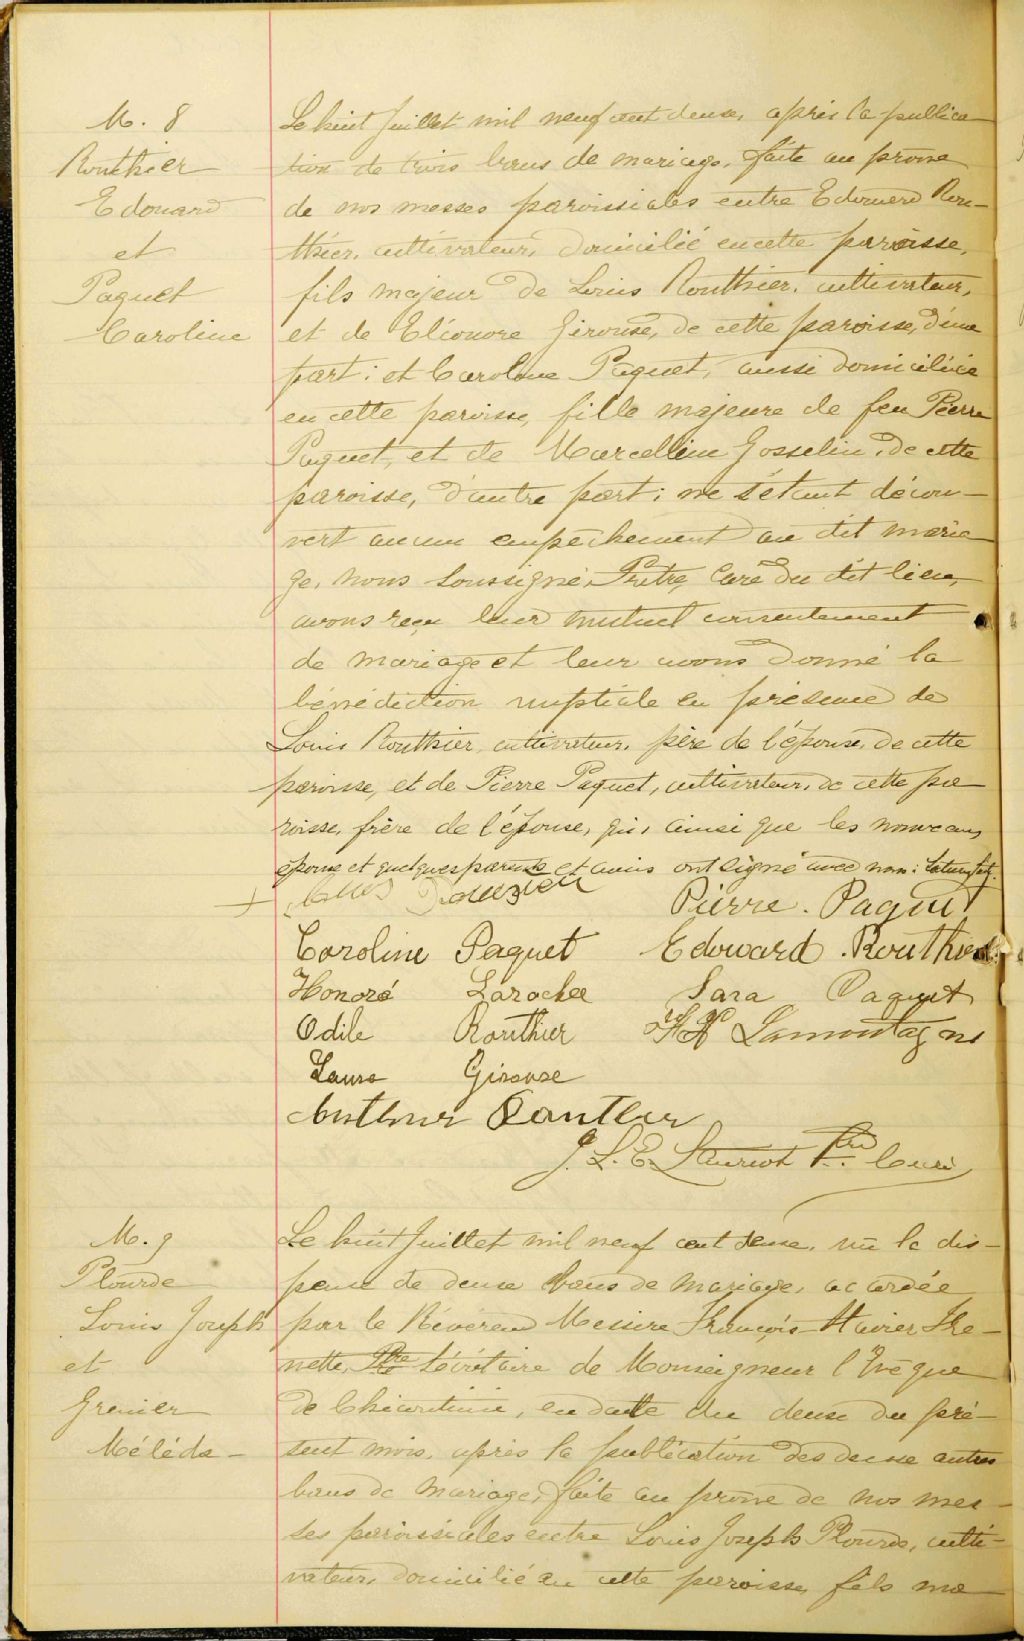 M. 8
Routhier
Edouard
et
Paquet
Caroline
Le huit Juillet mil neuf cent deux, après la publica-
tion de trois bans de mariage, faite au prône
de nos messes paroissiales entre Edouard Rou-
thier, cultivateur, domicilié en cette paroisse,
fils majeur de Louis Routhier, cultivateur,
et de Eléonore Girouse, de cette paroisse, d'une
part; et Caroline Paquet, aussi domiciliée
en cette paroisse, fille majeure de feu Pierre
Paquet, et de Marcelline Gosselin, de cette
paroisse, d'autre part; ne s'étant décou-
vert aucun empêchement au dit maria-
ge, nous soussigné, Prêtre, Curé du dit lieu,
avons reçu leur mutuel consentement
de mariage et leur avons donné la
bénédiction nuptiale en présence de
Louis Routhier, cultivateur, père de l'époux, de cette
paroisse, et de Pierre Paquet, cultivateur, de cette pa-
roisse, frère de l'épouse, qui, ainsi que les nouveaux
époux et quelques parents et amis ont signé avec nous: lecture faite.
Pierre. Paquet
Caroline Paquet Edouard. Routhier
Honoré Laroche Sara Paquet
Odile Routhier Lamontagne
Laura Girouse
Arthur Routhier
J. L. E. Lauriot Ptre Curé
M. 9
Plourde
Louis Joseph
et
Grenier
Méléda
Le huit Juillet mil neuf cent deux, vu la dis-
pense de deux bans de mariage, accordée
par le Révérend Messire François-Xavier Fre-
nette, Ptre Sécrétaire de Monseigneur l'Evêque
de Chicoutimi, en date du deux du pré-
sent mois, après la publication des deux autres
bans de mariage, faite au prône de nos mes-
ses paroissiales entre Louis Joseph Plourde, culti-
vateur, domicilié en cette paroisse, fils ma-